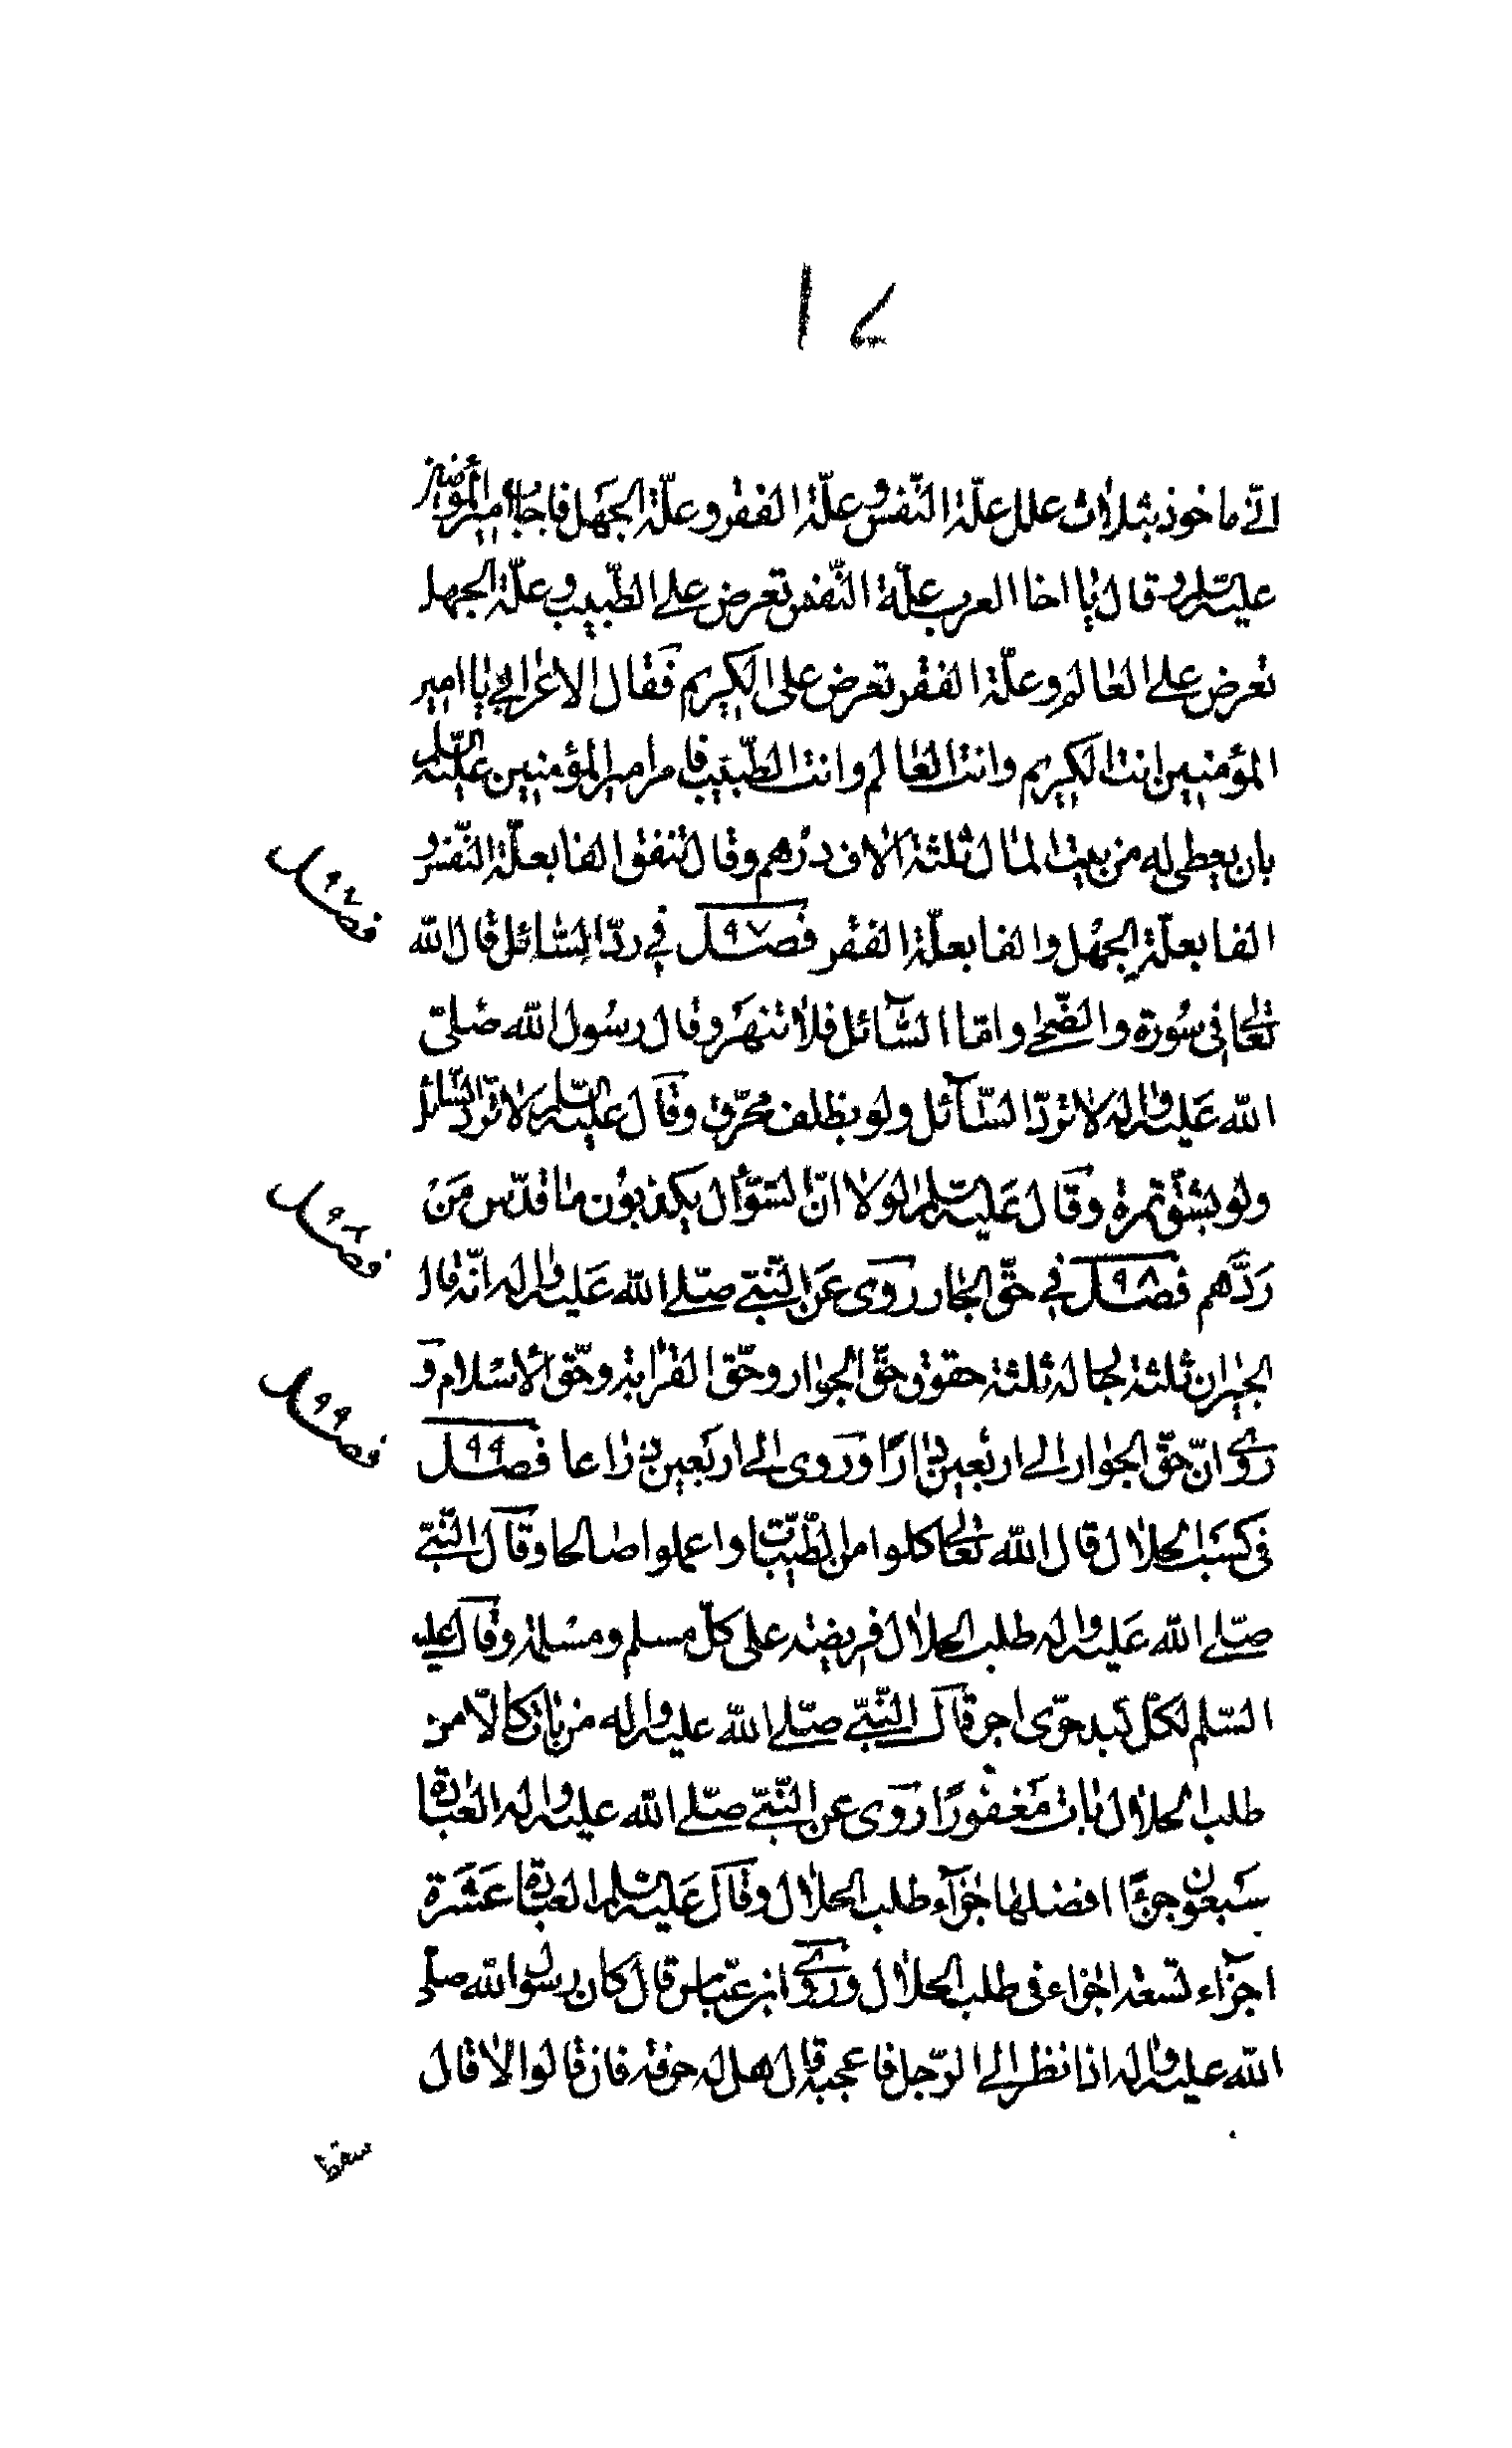 انّى ماخوذ بثلاث علل علّة النّفس وعلّة الفقر وعلّة الجهل فاجاب امير المؤمنين
عليه السّلم وقال يا اخا العرب علّة النّفس تعرض على الطّبيب وعلّة الجهل
تعرض على العالم وعلّة الفقر تعرض على الكريم فقال الاعرابى يا امير
المؤمنين انت الكريم وانت العالم وانت الطّبيب فامر امير المؤمنين عليه السّلم
بان يعطى له من بيت المال ثلثة الاف درهم وقال تنفق الفا بعلّة النّفس و
الفا بعلّة الجهل والفا بعلّة الفقر فصــل ٩٧ فى ردّ السّائل قال الله
تعالى فى سورة والضّحى وامّا السّآئل فلا تنهر وقال رسول الله صلّى
الله عليه واله لا تردّ السّآئل ولو بظلف محرّق وقال عليه السّلم لا تردّ السّائل
ولو بشقّ تمرة وقال عليه السّلم لولا انّ السّؤّال يكذبون ما قدّس من
ردّهم فصــل ٩٨ فى حقّ الجار روى عن النّبىّ صلّى الله عليه واله انّه قال
الجيران ثلثة جار له ثلثة حقوق حقّ الجوار وحقّ القرابة وحقّ الاسلام و
روى انّ حقّ الجوار الى اربعين دارًا وروى الى اربعين ذراعا فصــل ٩٩
فى كسب الحلال قال الله تعالى كلوا من الطّيّبات واعملوا صالحا وقال النّبىّ
صلّى الله عليه واله طلب الحلال فريضة على كلّ مسلم ومسلمة وقال عليه
السّلم لكلّ كبد حرّى اجر قال النّبىّ صلّى الله عليه واله من بات كالّا من
طلب الحلال بات مغفورًا روى عن النّبىّ صلّى الله عليه واله العبادة
سبعون جزءًا افضلها جزآء طلب الحلال وقال عليه السّلم العبادة عشرة
اجزآء تسعة اجزاء فى طلب الحلال وروى ابن عبّاس قال كان رسول الله صلّى
الله عليه واله اذا نظر الى الرّجل فاعجبه قال هل له حرفة فان قالوا لا قال
سقط
١٧
فصل ٩٧
فصل ٩٨
فصل ٩٩